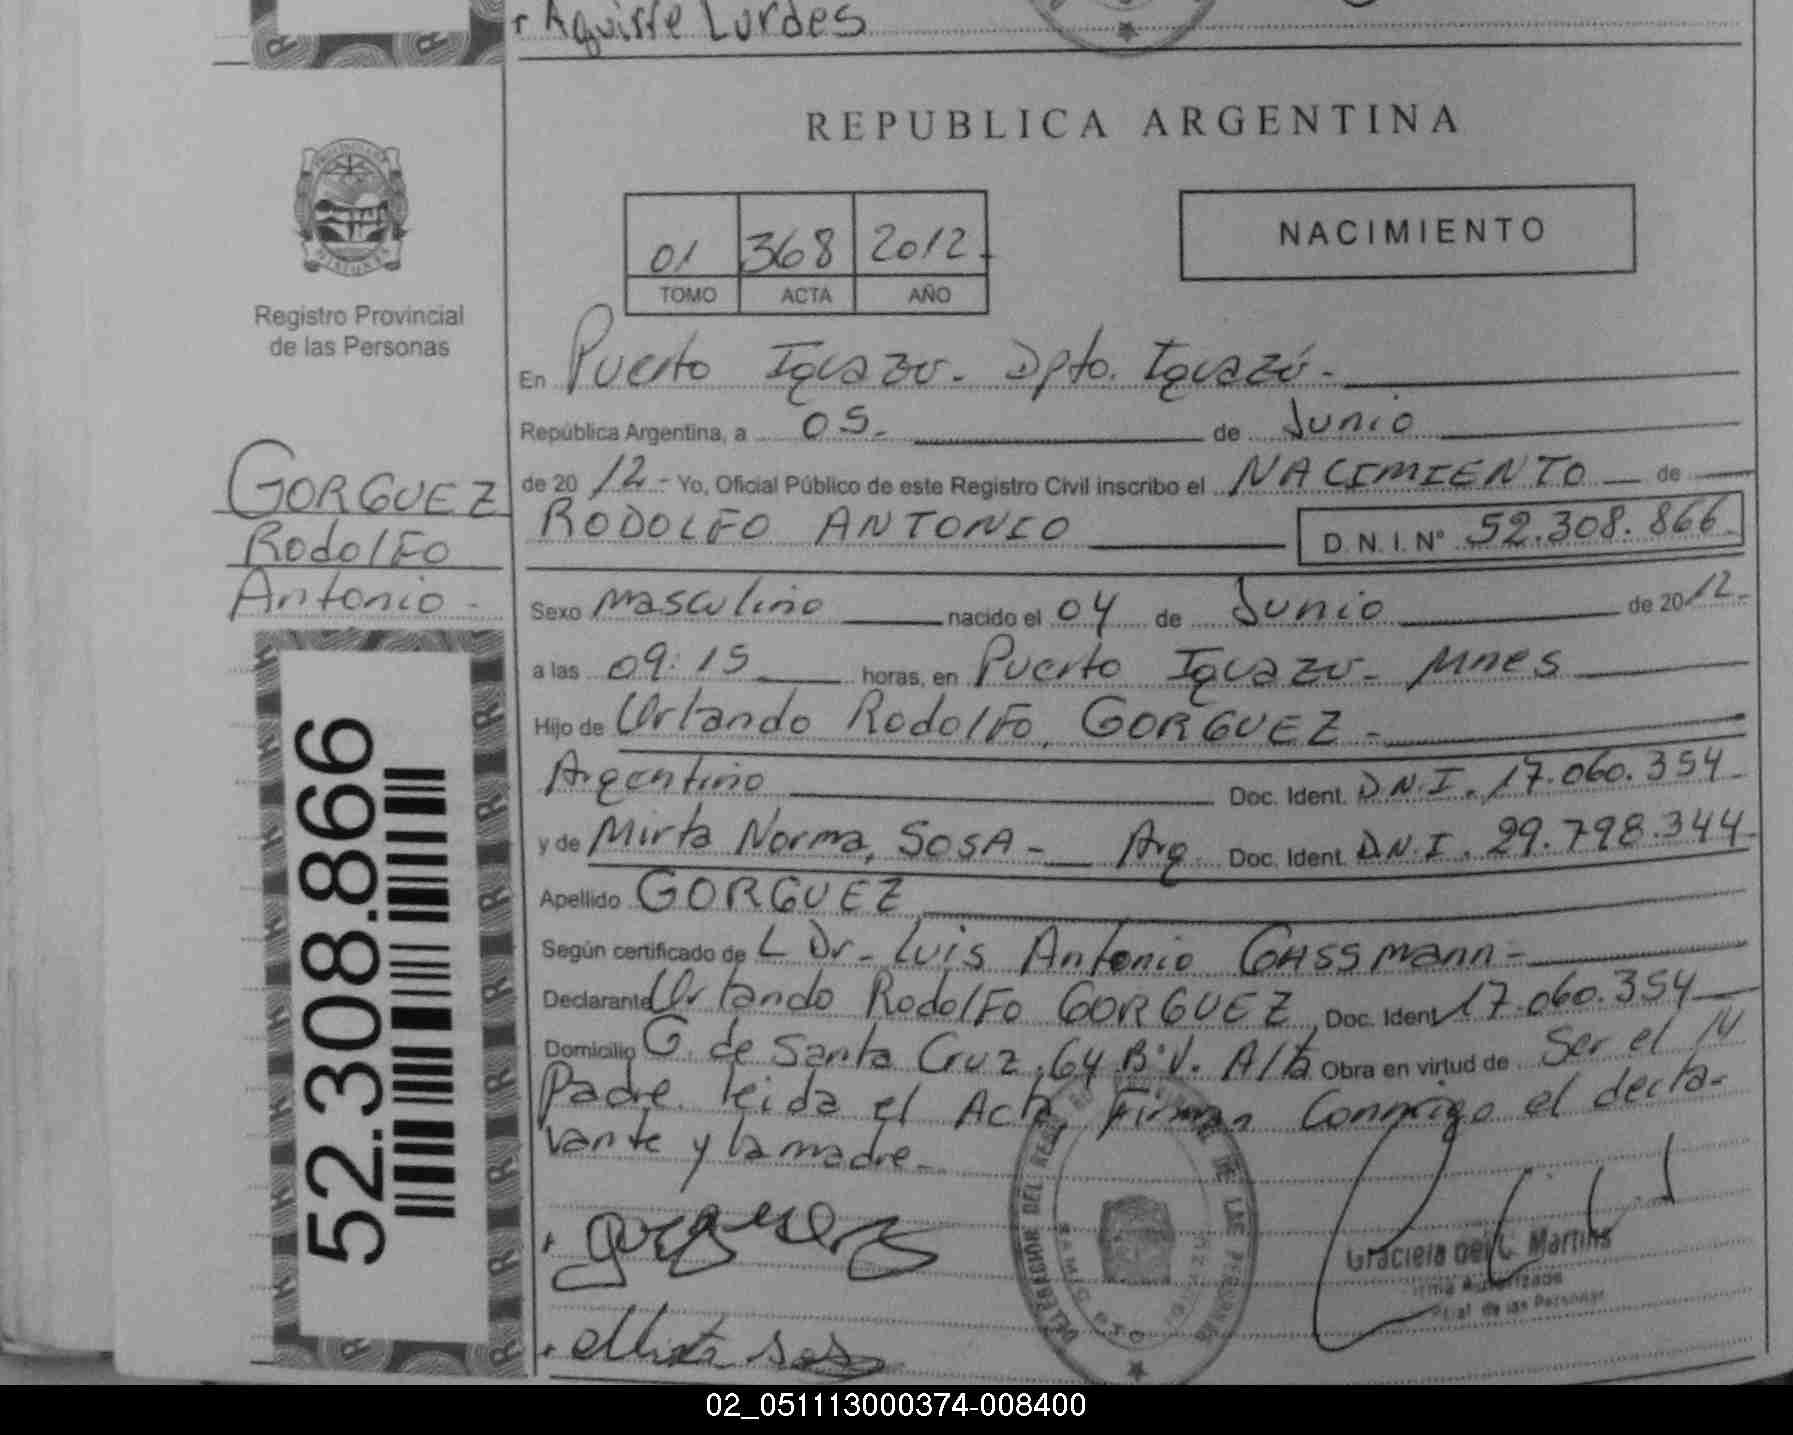 Aguirre Lurdes
REPUBLICA ARGENTINA
01 368 2012
TOMO ACTA AÑO
NACIMIENTO
Registro Provincial
de las Personas
GORGUEZ
Rodolfo
Antonio -
52.308.866
En Puerto Iguazu - Dpto. Iguazú -
República Argentina, a 05 - de Junio
de 20 12 - Yo, Oficial Público de este Registro Civil inscribo el NACIMIENTO de
RODOLFO ANTONIO D.N.I. Nº 52.308.866
Sexo masculino nacido el 04 de Junio de 20 12 -
a las 09:15 horas, en Puerto Iguazu - Mnes
Hijo de Orlando Rodolfo, GORGUEZ -
Argentino Doc. Ident. D.N.I. 17.060.354 -
y de Mirta Norma, SOSA - Arg. Doc. Ident. D.N.I. 29.798.344 -
Apellido GORGUEZ
Según certificado de L Dr - Luis Antonio GASSmann -
Declarante Orlando Rodolfo GORGUEZ, Doc. Ident. 17.060.354
Domicilio G. de Santa Cruz, 64 Bº V. Alta Obra en virtud de Ser el
Padre. leida el Acta, Firman Conmigo el decla-
rante y la madre -
Gorguez
Mirta sosa
DELEGACION DEL REGISTRO DE LAS PERSONAS
Graciela Del C. Martins
Firma Autorizada
de las Personas
02_051113000374-008400